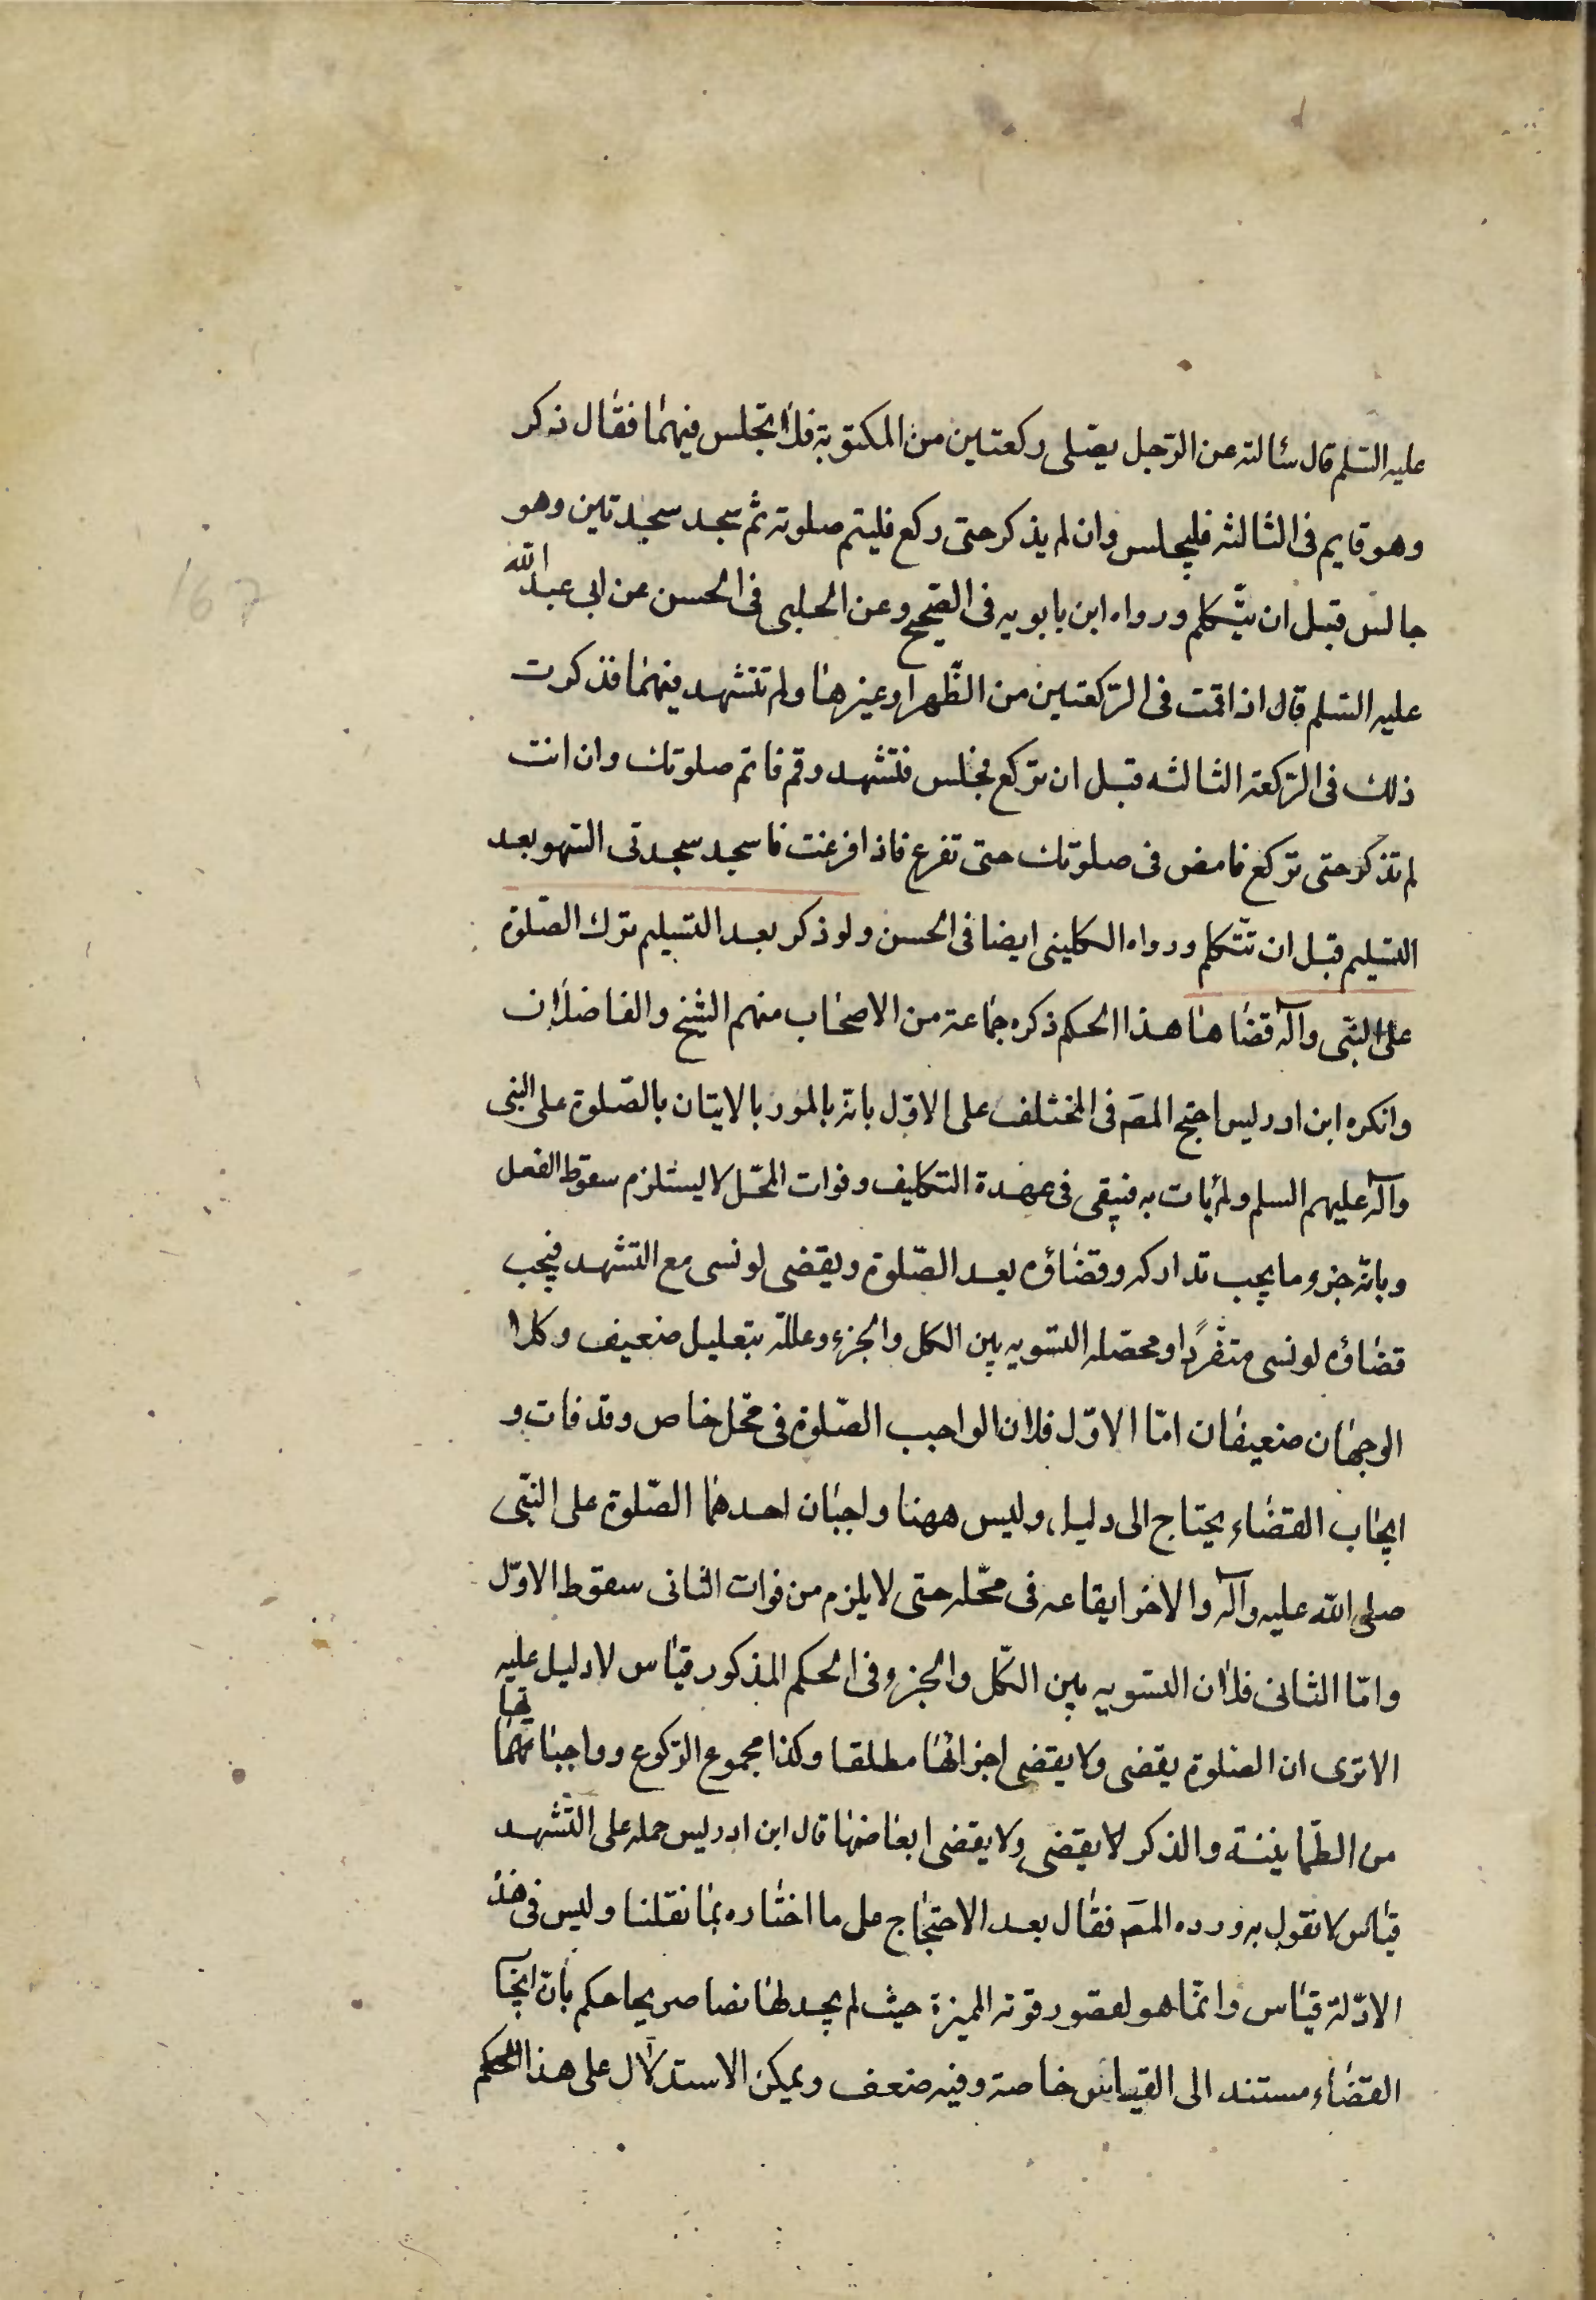 عليه السّلم قال سئالته عن الرّجل يصّلى ركعتين من المكتوبة فلا تجلس فيهما فقال ذكر
وهو قايم فى الثالثه فليجلس وان لم يذكر حتى ركع فليتم صلوته ثم سجد سجدتين وهو
جالس قبل ان يتكلم ورواه ابن بابويه فى الصّحيح وعن الحلبى فى الحسن عن ابى عبدالله
عليه السّلم قال اذا قمت فى الرّكعتين من الظّهر او غيرها ولم تتشهد فيهما فذكرت
ذلك فى الرّكعة الثالثه قبل ان تركع فجلس فتشهد وقم فاتم صلوتك وان انت
لم تذكر حتى تركع فامض فى صلوتك حتى تفرغ فاذا فرغت فاسجد سجدتى السّهو بعد
التسليم قبل ان تتكلم ورواه الكلينى ايضا فى الحسن ولو ذكر بعد التسليم ترك الصّلوة
على النبّى وآله قضاها هذا الحكم ذكره جماعة من الاصحاب منهم الشيخ والفاضلان
وانكره ابن ادريس احتج المصَ فى المختلف على الاوّل بانّه بالمور بالايتان بالصّلوة على النبى
وآله عليهم السلم ولم يأت به فيبقى فى عهدة التكليف وفوات المحّل لا يستلزم سقوط الفعل
وبانّه جزو ما يجب تداركه وقضاؤه بعد الصّلوة ويقضى لو نسى مع التشهد فيجب
قضاؤه لو نسى متفردًا ومحصّله التسويه بين الكل والجزء وعللّه بتعليل ضعيف وكلا
الوجهان ضعيفان امّا الاوّل فلان الواجب الصّلوة فى محّل خاص وقد فات و
ايجاب القضاء يحتاج الى دليل وليس ههنا واجبان احدهما الصّلوة على النبّى
صلى الله عليه وآله والاخر ايقاعه فى محّله حتى لا يلزم من فوات الثانى سقوط الاوّل
وامّا الثانى فلان التسويه بين الكّل والجزو فى الحكم المذكور قياس لا دليل عليه
الا ترى ان الصّلوة يقضى ولا يقضى اجزائها مطلقا وكذا مجموع الرّكوع وواجباتهما تها
من الطّمانينة والذكر لا يقضى ولا يقضى ابعاضها قال ابن ادريس حمله على التّشهد
قياس لا نقول به ورده المصَ فقال بعد الاحتجاج على ما اختاره بما نقلنا وليس فى هذه
الادّلة قياس وانّما هو لقصور قوته الميزة حيث لم يجد لها نصا صريحا حكم بانّ ايجا
القضاء مستند الى القياس خاصة وفيه ضعف ويمكن الاستدلال على هذا الحكم
167